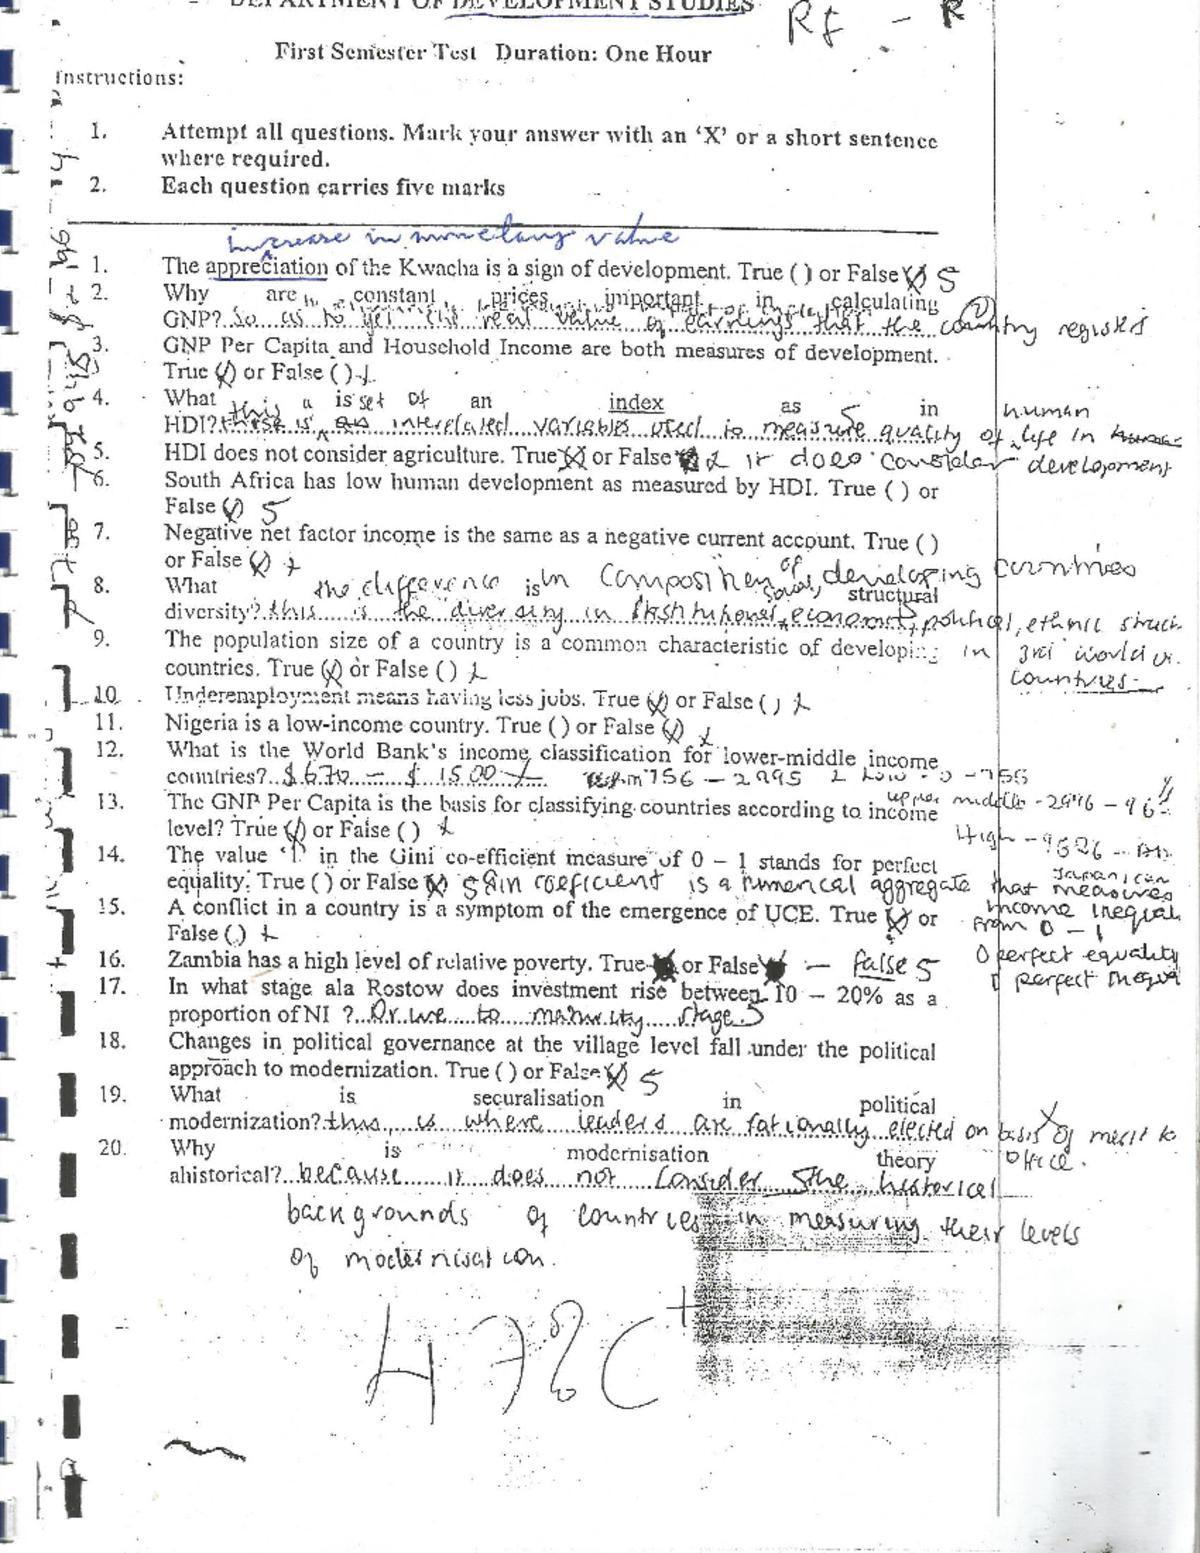 DEPARTMENT OF DEVELOPMENT STUDIES
First Semester Test Duration: One Hour
Instructions:
1. Attempt all questions. Mark your answer with an 'X' or a short sentence
where required.
2. Each question carries five marks
increase in monetary value
1. The appreciation of the Kwacha is a sign of development. True ( ) or False (X) 5
2. Why are constant prices important in calculating
GNP? So as to get the real value of earnings that the country registers
3. GNP Per Capita and Household Income are both measures of development.
True (X) or False ( )
4. What is an index as in
this a set of 5 human
HDI? these is interelated variables used to measure quality of life in
5. HDI does not consider agriculture. True (X) or False it does consider development
6. South Africa has low human development as measured by HDI. True ( ) or
False (X) 5
7. Negative net factor income is the same as a negative current account. True ( )
or False (X)
8. What is structural
the difference in Composition of developing countries
diversity? this is the diversity in institutional, economic, political, ethnic struct
9. The population size of a country is a common characteristic of developing in 3rd world
countries. True (X) or False ( ) countries
10. Underemployment means having less jobs. True (X) or False ( )
11. Nigeria is a low-income country. True ( ) or False (X)
12. What is the World Bank's income classification for lower-middle income
countries? $ 670 - $ 1500 756 - 2995 Low - 0 - 755
upper middle - 2996 -
13. The GNP Per Capita is the basis for classifying countries according to income
level? True (X) or False ( ) High -
14. The value '1' in the Gini co-efficient measure of 0 – 1 stands for perfect
equality. True ( ) or False (X) 5 Gin coeficient is a numerical aggregate that measures
income inequal
15. A conflict in a country is a symptom of the emergence of UCE. True (X) or from 0 - 1
False ( )
0 perfect equality
16. Zambia has a high level of relative poverty. True or False — False 5
1 perfect inequal
17. In what stage ala Rostow does investment rise between 10 – 20% as a
proportion of NI ? Drive to maturity stage 5
18. Changes in political governance at the village level fall under the political
approach to modernization. True ( ) or False (X) 5
19. What is securalisation in political
modernization? this is where leaders are rationally elected on basis of merit to
office.
20. Why is modernisation theory
ahistorical? because it does not consider 5 the historical
backgrounds of countries in measuring their levels
of modernisation.
47% C+